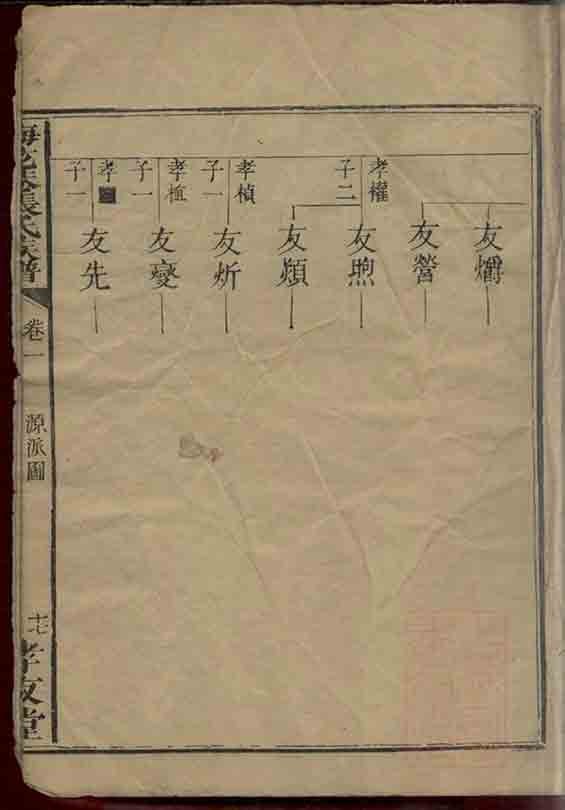 友爝
友營
孝權
子二
友煦
友熲
孝楨
子一
友炘
孝植
子一
友燮
孝
子一
友先
張氏族譜
卷一
源派圖
十七
孝友堂